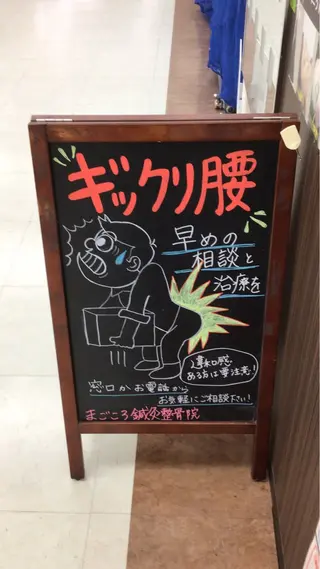 ギックリ腰
早めの
相談と
治療を
違和感
ある方は要注意!
窓口かお電話から
お気軽にご相談下さい!
まごころ鍼灸整骨院